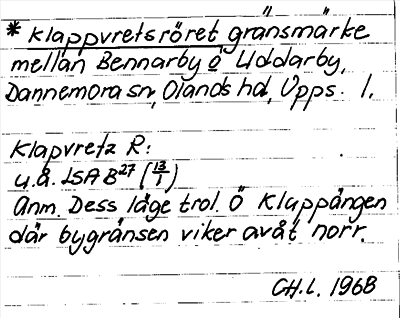 * klappvretsröret gränsmärke
mellan Bennarby o Uddarby,
Dannemora sn, Olands hd, Upps. l.
Klapvretz R:
u.å. LSA B27 (13/1)
Anm. Dess läge trol. Ö Klappängen
där bygränsen viker av åt norr.
CH.L. 1968